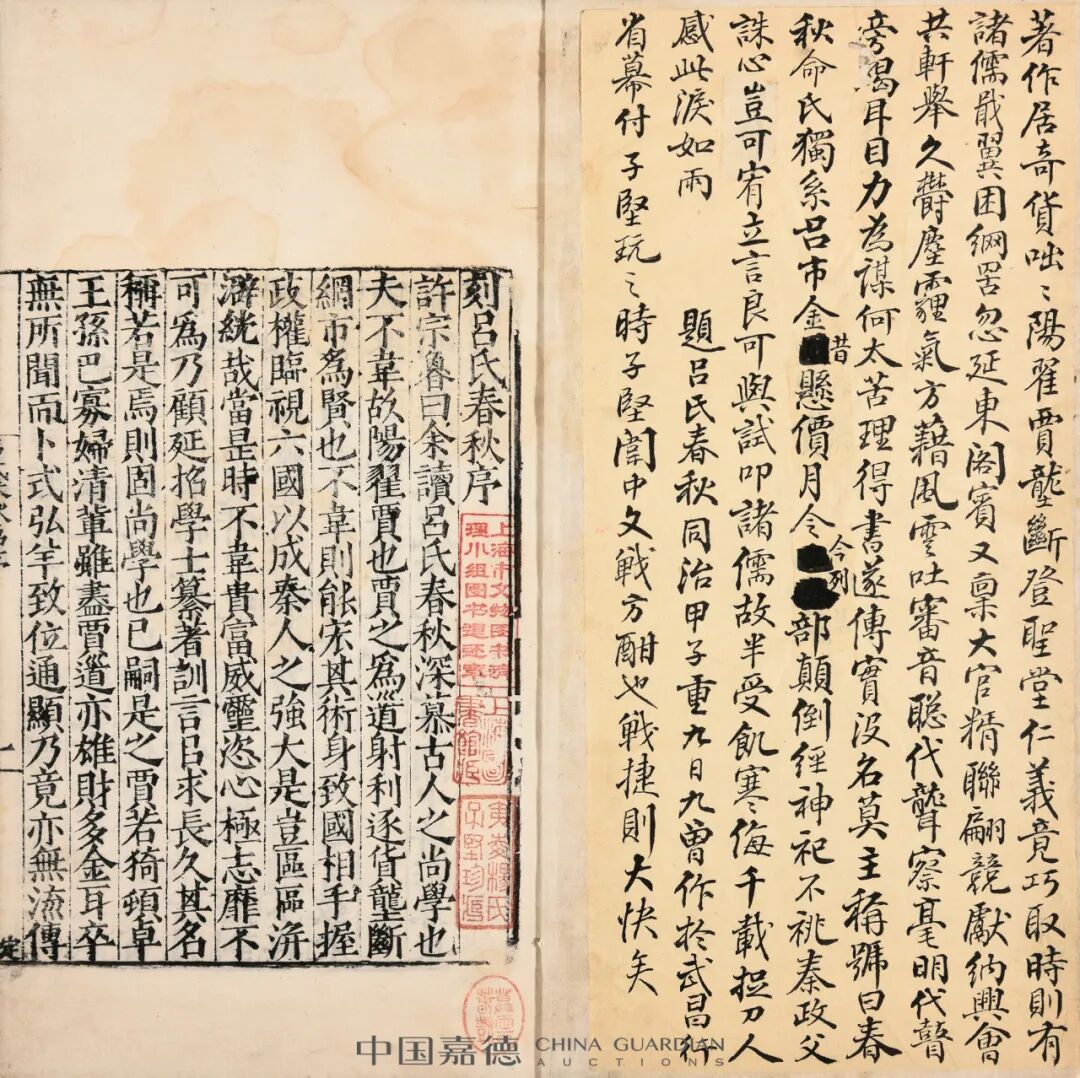 著作居奇貨咄〻陽翟賈壟斷登聖堂仁義竟巧取時則有
諸儒戢翼困網罟忽延東閣賓又稟大官精聯翩競獻納興會
共軒舉久鬱塵霾氣方藉風雲吐審音聰代聾察毫明代瞽
旁耳目力為謀何太苦理得書遂傳實沒名莫主稱號曰春
秋命氏獨系呂市金昔懸價月令今列部顛倒經神祀不祧秦政父
誅心豈可宥立言良可與試叩諸儒故半受飢寒侮千載捉刀人
感此淚如雨　題呂氏春秋同治甲子重九日九曾作於武昌行
省幕付子堅玩〻時子堅闈中文戰方酣也戰捷則大快矣
刻呂氏春秋序
許宗魯曰余讀呂氏春秋深慕古人之尚學也
夫不韋故陽翟賈也賈之爲道射利逐貨壟斷
網市爲賢也不韋則能宏其術身致國相手握
政權臨視六國以成秦人之強大是豈區區洴
澼絖哉當是時不韋貴富威靈恣心極志靡不
可爲乃顧延招學士纂著訓言呂求長久其名
稱若是焉則固尚學也已嗣是之賈若猗頓卓
王孫巴寡婦清輩雖盡賈道亦雄財多金耳卒
無所聞而卜式弘羊致位通顯乃竟亦無流傳
上海市文物图书清
理小组图书退还章
上海图
書館藏
子堅珍藏
中国嘉德 CHINA GUARDIAN
AUCTIONS